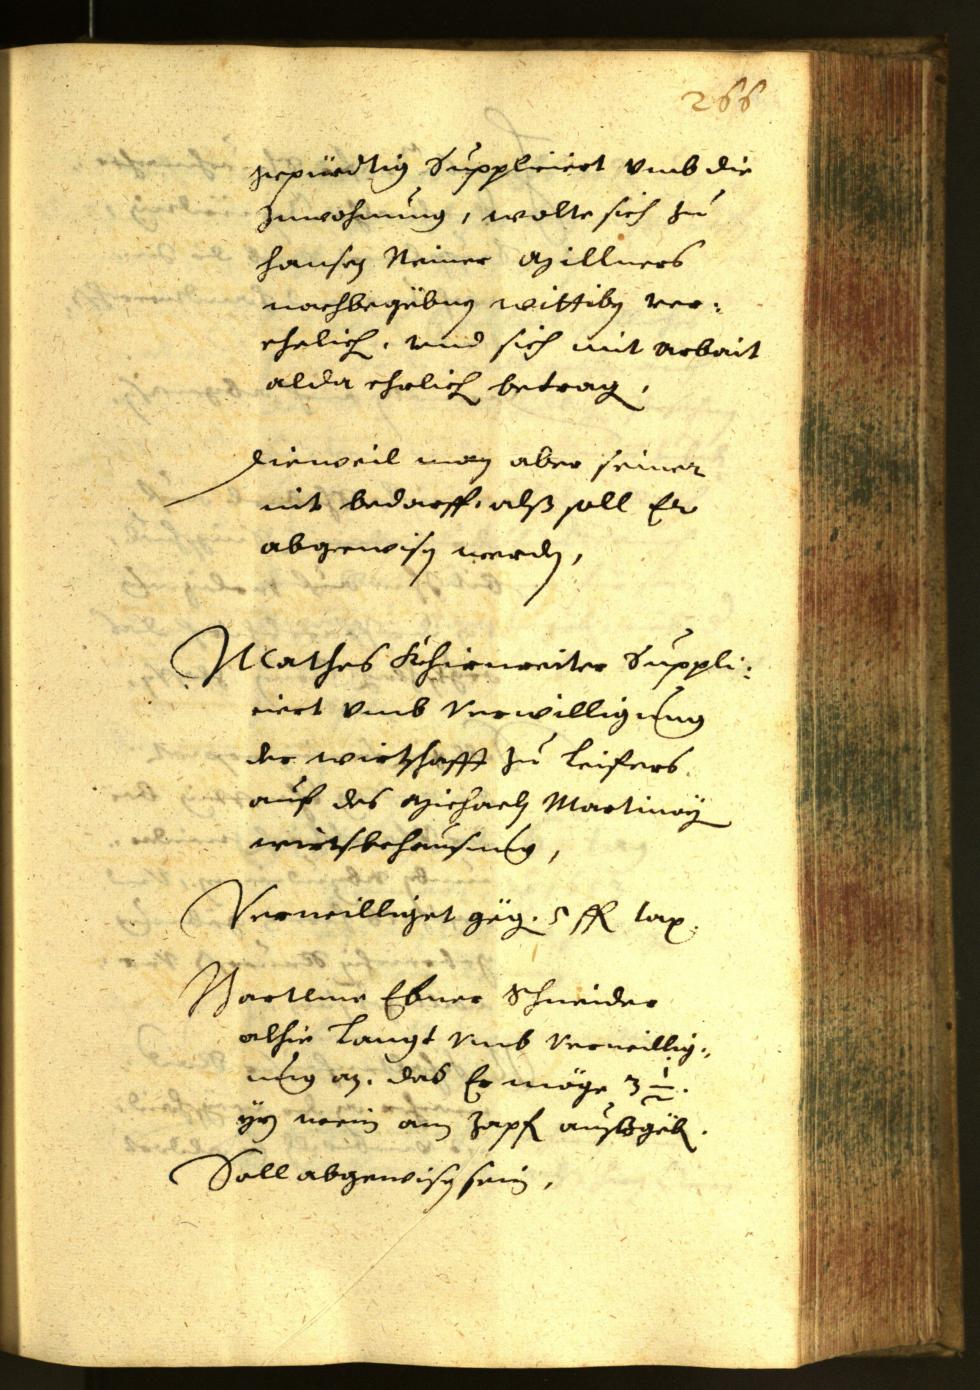 266
gepürdtig Suppliciert vmb die
Inwohnung, wolte sich zu
hansen Reiner Millners
nachbegebnen wittiben ver:
ehelich. vnd sich mit arbait
alda ehrlich betragen,
Dieweil man aber seiner
nit bedarff. alß soll Er
abgewisen werden,
Mathes Khirnreiter Suppli:
ciert vmb Verwilligung
der wirtschafft zu Leifers
auf des Michaeln Martinoÿ
wirtsbehausung,
Verwilliget gegen 5 fl tax.
Bartlme Ebner Schneider
alhie langt vmb Verwillig:
ung an. das Er möge 3 1/2.
ÿrn wein am Zapfen außgeben.
Soll abgewisen sein,